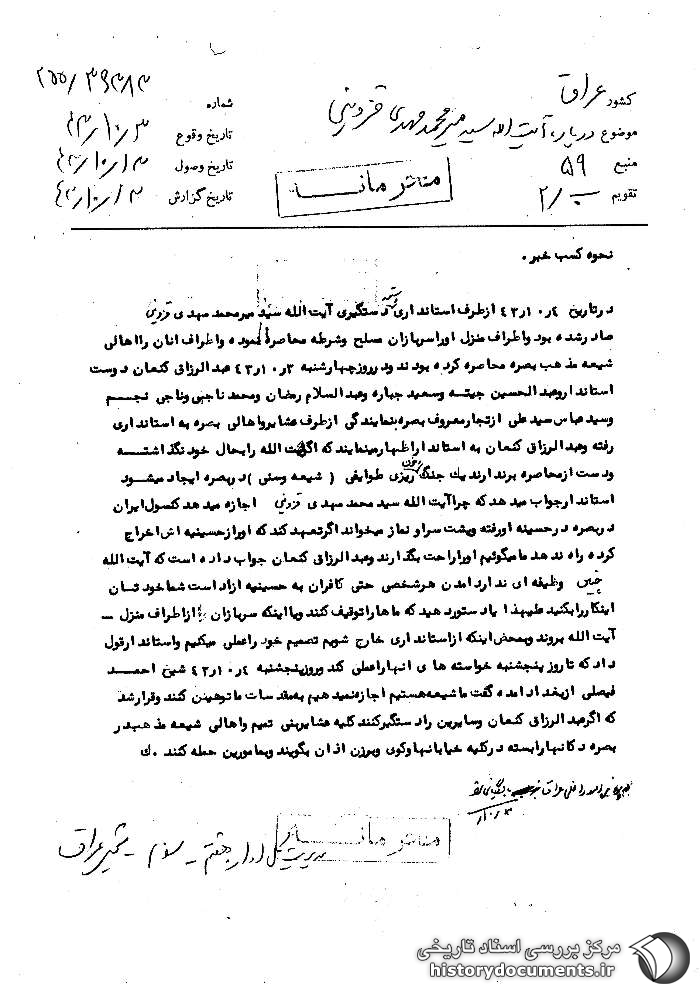 کشور عراق
موضوع درباره آیت الله سید میرمحمد مهدی قزوینی
منبع ۵۹
تقویم ب/۲
شماره ۲۵۵/۳۹۳۸۳
تاریخ وقوع ۴۳/۱۰/۳
تاریخ وصول ۴۳/۱۰/۱۳
تاریخ گزارش ۴۳/۱۰/۱۳
نحوه کسب خبر .
درتاریخ ۴ر۱۰ر۴۳ ازطرف استانداری دستگیری آیت الله سید میرمحمد مهدی قزوینی
صادرشده بود واطراف منزل اوراسربازان مسلح وشرطه محاصره نموده واطراف انان رااهالی
شیعه مذهب بصره محاصره کرده بودند ودرروزچهارشنبه ۳ر۱۰ر۴۳ عبدالرزاق کنعان دوست
استانداروعبدالحسین جیته وسعید جباره وعبدالسلام رضان ومحمد ناجی وناجی نجسم
وسیدعباس سیدعلی ازتجارمعروف بصره بنمایندگی ازطرف عشایرواهالی بصره به استانداری
رفته وعبدالرزاق کنعان به استانداراظهارمینمایند که اگرآیت الله رابحال خودنگذاشتـه
ودست ازمحاصره برندارند یك جنگ خون ریزی طوایفی ( شیعه وسنی ) دربصره ایجاد میشود
استاندارجواب میدهد که چراآیت الله سید محمد مهدی قزوینی اجازه میدهد کنسول ایران
دربصره درحسینه اورفته وپشت سراو نماز میخواند اگرتعهد کند که اورازحسینیه اش اخراج
کرده راه ندهد مامیگوئیم اوراراحت بگذارند وعبدالرزاق کنعان جواب داده است که آیت الله
چنین وظیفه ای ندارد امدن هرشخصی حتی کافران به حسینیه ازاد است شما خودتـان
اینکاررابکنید علیهذا یادستوردهید که ماهاراتوقیف کنند ویااینکه سربازان ازاطراف منزل ــ
آیت الله بروند وبمحض اینکه ازاستانداری خارج شویم تصمیم خود راعملی میکنیم واستاندارقول
داد که تاروز پنجشنبه خواسته های انهاراعملی کند وروزپنجشنبه ۴ر۱۰ر۴۳ شیخ احمـد
فیصلی ازبغداد امده گفت ماشیعه هستیم اجازه نمیدهیم به مقدسات ماتوهین کنند وقرارشد
که اگرعبدالرزاق کنعان وسایرین رادستگیرکنند کلیه عشایربنی تمیم واهالی شیعه مذهبدر
بصره دکانهارابسته درکلیه خیابانهاوکوی وبرزن اذان بگویند وبمامورین حمله کنند . ك
مدیریت کل اداره هفتم - سوم - شیخ عراق
مرکز بررسی اسناد تاریخی
historydocuments.ir